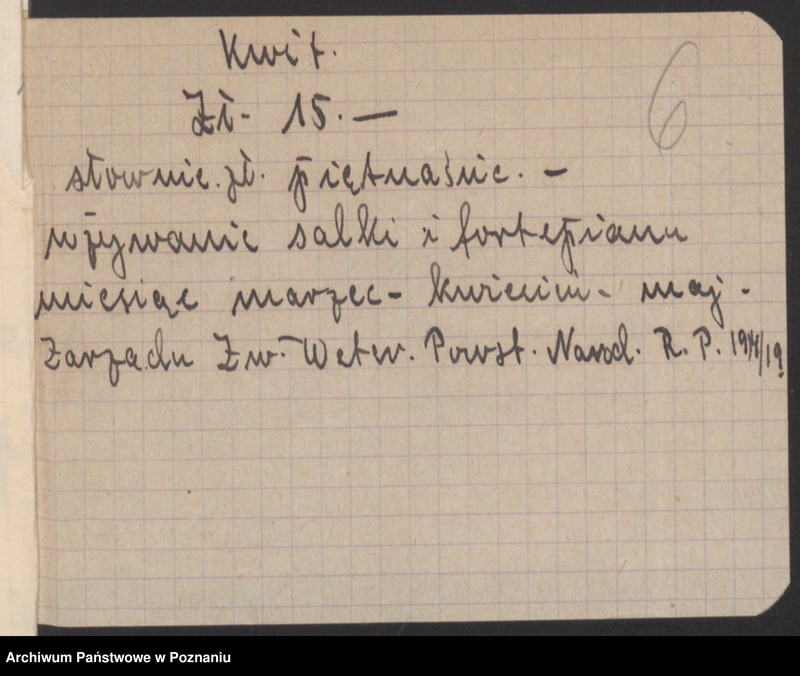 Kwit.
6
Zł. 15. —
słownie. zł. piętnaśnie. —
używanie salki i fortepianu
miesiąc marzec - kwiecin - maj -
Zarządu Zw. Weter. Powst. Narod. R. P. 1914/19
Archiwum Państwowe w Poznaniu